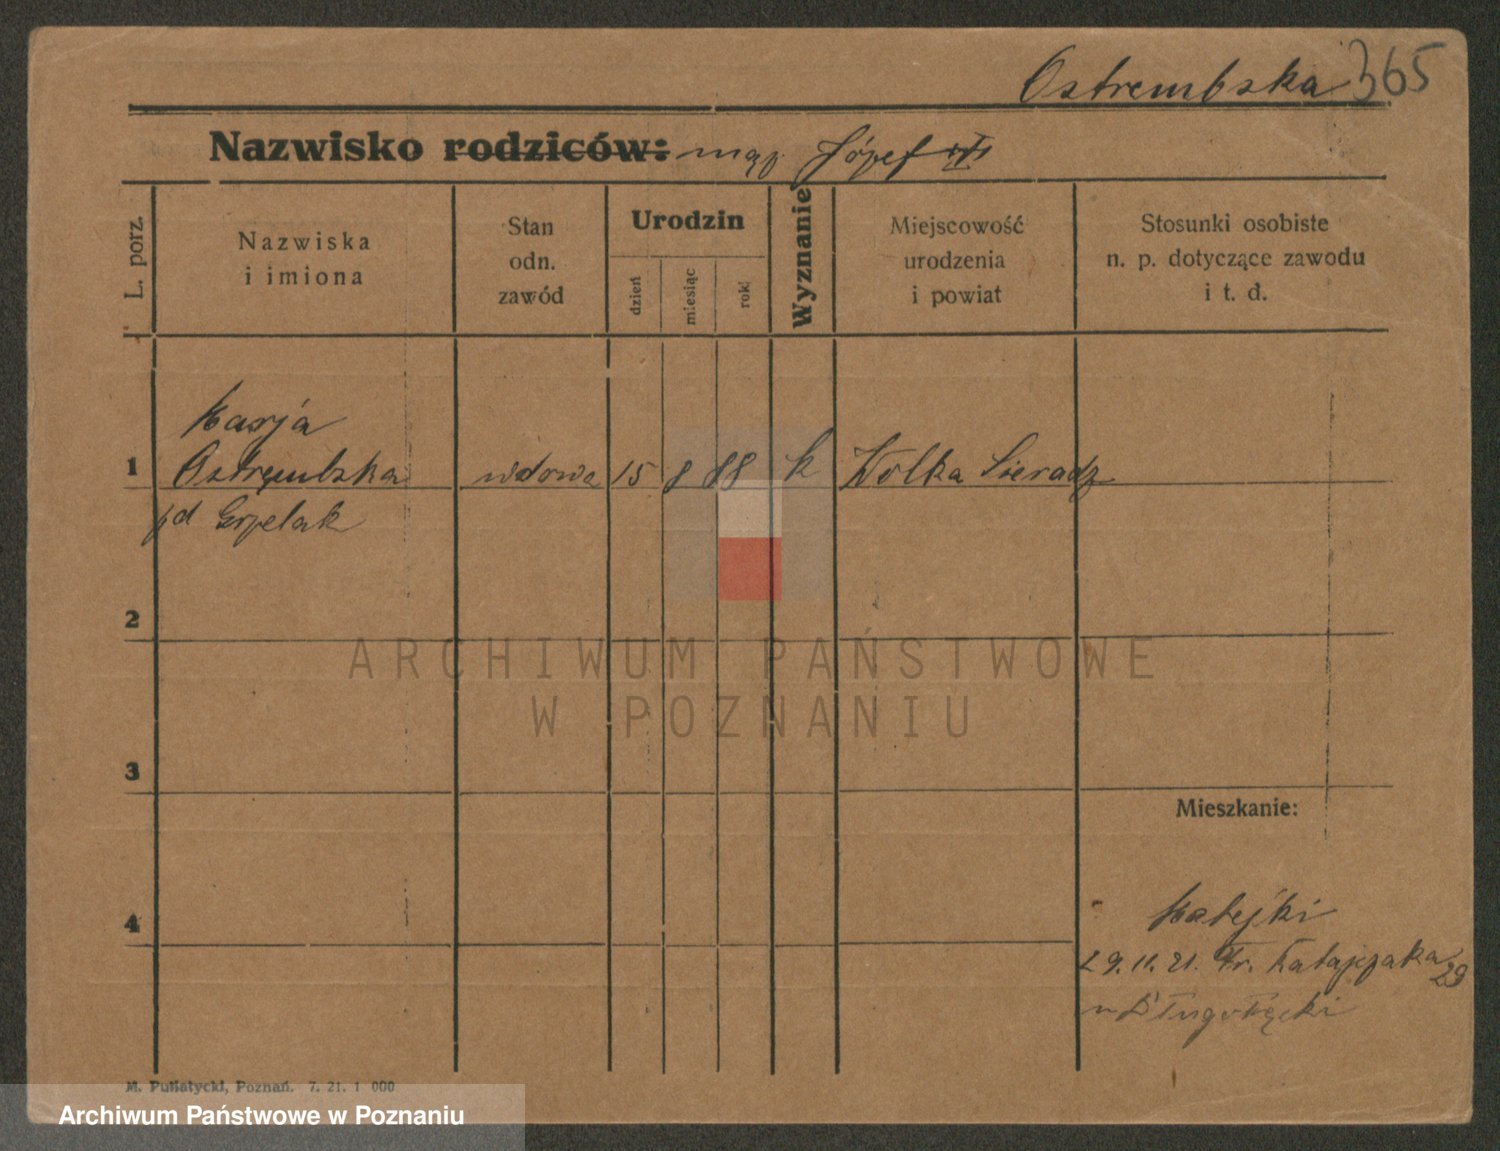 Ostrembska 365
Nazwisko rodziców: mąż Józef
L. porz.
Nazwiska
i imiona
Stan
odn.
zawód
Urodzin
dzień
miesiąc
rok
Wyznanie
Miejscowość
urodzenia
i powiat
Stosunki osobiste
n. p. dotyczące zawodu
i t. d.
Marja
1 Ostrembska wdowa 15 8 88 k Wolka Sieradz
2
3
Mieszkanie:
4
Matejki
29.11.21. Fr. Ratajczaka 29
M. Putiatycki, Poznań. 7. 21. 1 000
ARCHIWUM PAŃSTWOWE
W POZNANIU
Archiwum Państwowe w Poznaniu